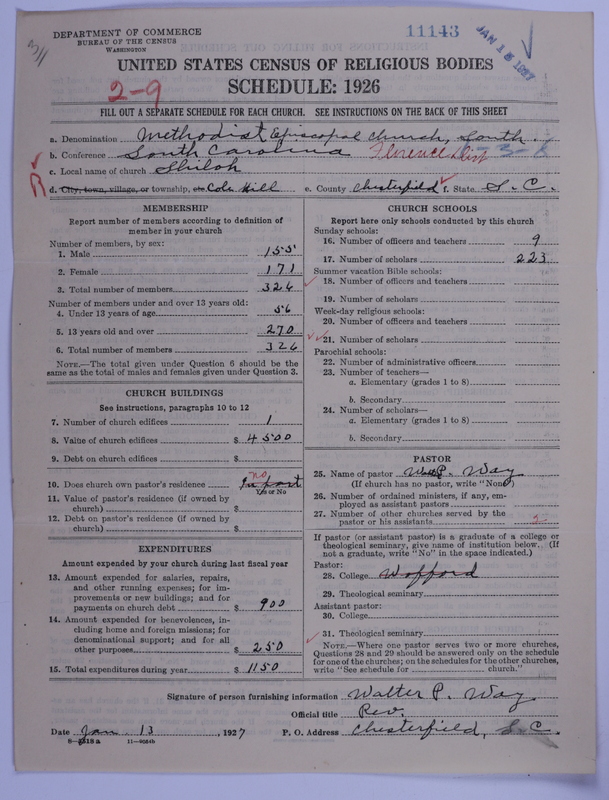 DEPARTMENT OF COMMERCE
BUREAU OF THE CENSUS
WASHINGTON
11143
JAN 15 1927
UNITED STATES CENSUS OF RELIGIOUS BODIES
SCHEDULE: 1926
2-9
FILL OUT A SEPARATE SCHEDULE FOR EACH CHURCH. SEE INSTRUCTIONS ON THE BACK OF THIS SHEET
a. Denomination Methodist Episcopal Church, South
b. Conference South Carolina Florence Dist 8-3-8
c. Local name of church Shiloh
R d. City, town, village, or township, etc Cole Hill e. County Chesterfield f. State S. C.
MEMBERSHIP
Report number of members according to definition of
member in your church
Number of members, by sex:
1. Male 155
2. Female 171
3. Total number of members 326
Number of members under and over 13 years old:
4. Under 13 years of age 56
5. 13 years old and over 270
6. Total number of members 326
NOTE.—The total given under Question 6 should be the
same as the total of males and females given under Question 3.
CHURCH BUILDINGS
See instructions, paragraphs 10 to 12
7. Number of church edifices 1
8. Value of church edifices $ 4500
9. Debt on church edifices $
10. Does church own pastor's residence no In part
Yes or No
11. Value of pastor's residence (if owned by
church) $
12. Debt on pastor's residence (if owned by
church) $
EXPENDITURES
Amount expended by your church during last fiscal year
13. Amount expended for salaries, repairs,
and other running expenses; for im-
provements or new buildings; and for
payments on church debt $ 900
14. Amount expended for benevolences, in-
cluding home and foreign missions; for
denominational support; and for all
other purposes $ 250
15. Total expenditures during year $ 1150
CHURCH SCHOOLS
Report here only schools conducted by this church
Sunday schools:
16. Number of officers and teachers 9
17. Number of scholars 223
Summer vacation Bible schools:
18. Number of officers and teachers
19. Number of scholars
Week-day religious schools:
20. Number of officers and teachers
21. Number of scholars
Parochial schools:
22. Number of administrative officers
23. Number of teachers—
a. Elementary (grades 1 to 8)
b. Secondary
24. Number of scholars—
a. Elementary (grades 1 to 8)
b. Secondary
PASTOR
25. Name of pastor W. P. Way
(If church has no pastor, write "None")
26. Number of ordained ministers, if any, em-
ployed as assistant pastors
27. Number of other churches served by the
pastor or his assistants 2
If pastor (or assistant pastor) is a graduate of a college or
theological seminary, give name of institution below. (If
not a graduate, write "No" in the space indicated.)
Pastor:
28. College Wofford
29. Theological seminary
Assistant pastor:
30. College
31. Theological seminary
NOTE.—Where one pastor serves two or more churches,
Questions 28 and 29 should be answered only on the schedule
for one of the churches; on the schedules for the other churches,
write "See schedule for church."
Signature of person furnishing information Walter P. Way
Official title Rev.
Date Jan 13, 1927 P. O. Address Chesterfield, S. C.
11—9264b